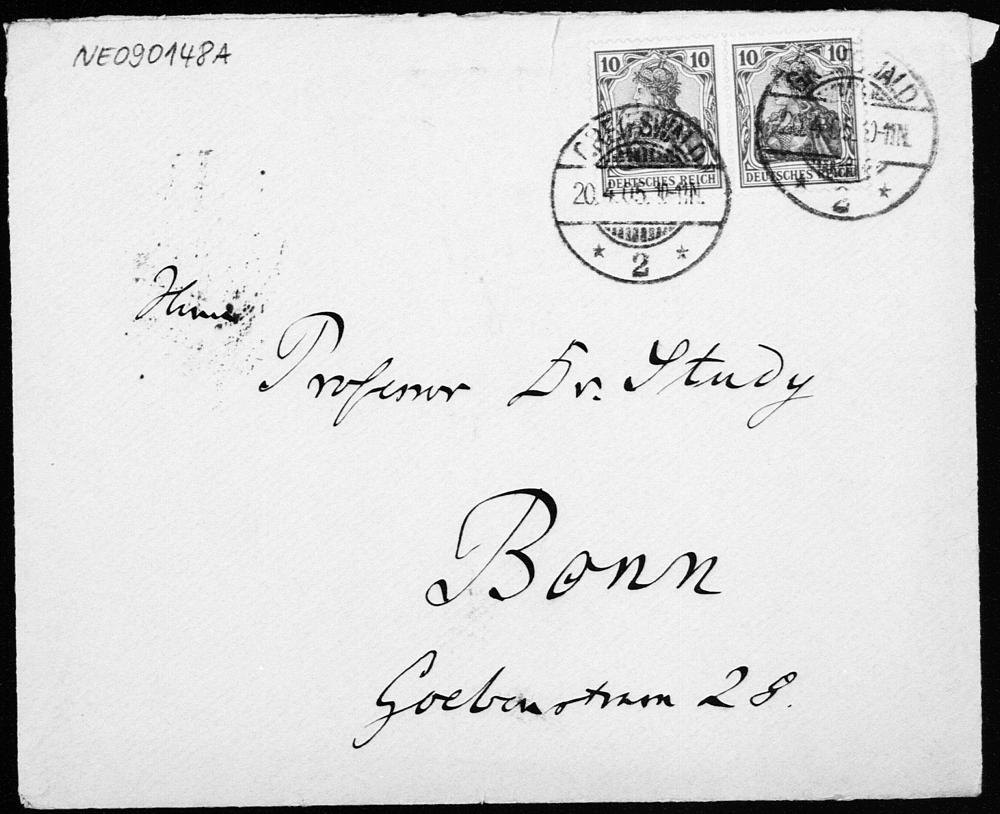 NE090148A
10 10
DEUTSCHES REICH
10 10
DEUTSCHES REICH
GREIFSWALD
20.4.05. 10-11N.
* 2 *
GREIFSWALD
20.4.05. 10-11N.
* 2 *
Herrn
Professor Dr. Study
Bonn
Goebenstrasse 28.